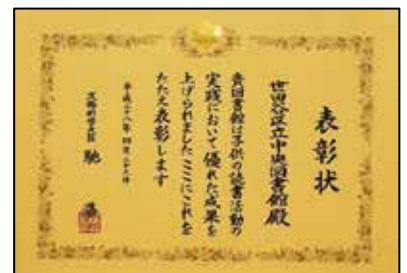 表彰状
世田谷区立中央図書館殿
貴図書館は子供の読書活動の
実践において優れた成果を
上げられましたここにこれを
たたえ表彰します
平成二十八年四月二十三日
文部科学大臣 馳 浩